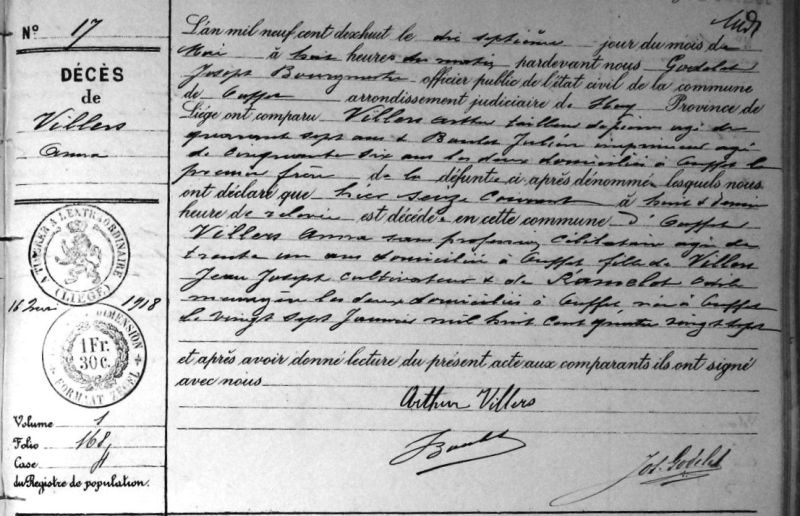 Nº 17
DÉCÈS
de
Villers
Anna
A TIMBRER A L'EXTRAORDINAIRE
(LIÈGE)
1918
DIMENSION
1 Fr.
30 c.
FORMAT
Volume 1
Folio 168
Case
du Registre de population.
L'an mil neuf cent dixhuit le dix septième jour du mois de
Mai à huit heures du matin pardevant nous Godelet
Joseph Bourgmestre officier public de l'état civil de la commune
de Ouffet arrondissement judiciaire de Huy Province de
Liége ont comparu Villers Arthur tailleur de pierres agé de
quarante sept ans & Boulet Julien imprimeur agé
de cinquante six ans les deux domiciliés à Ouffet le
premier frère de la défunte ci après dénommée lesquels nous
ont déclaré que hier seize courant à huit & demie
heure de relevée est décédée en cette commune d'Ouffet
Villers Anna sans profession célibataire agée de
trente un ans domiciliée à Ouffet fille de Villers
Jean Joseph cultivateur & de Ramelot
ménagère les deux domiciliés à Ouffet née à Ouffet
le vingt sept Janvier mil huit cent quatre vingt sept
et après avoir donné lecture du présent acte aux comparants ils ont signé
avec nous
Arthur Villers
JBoulet
Jos. Godelet